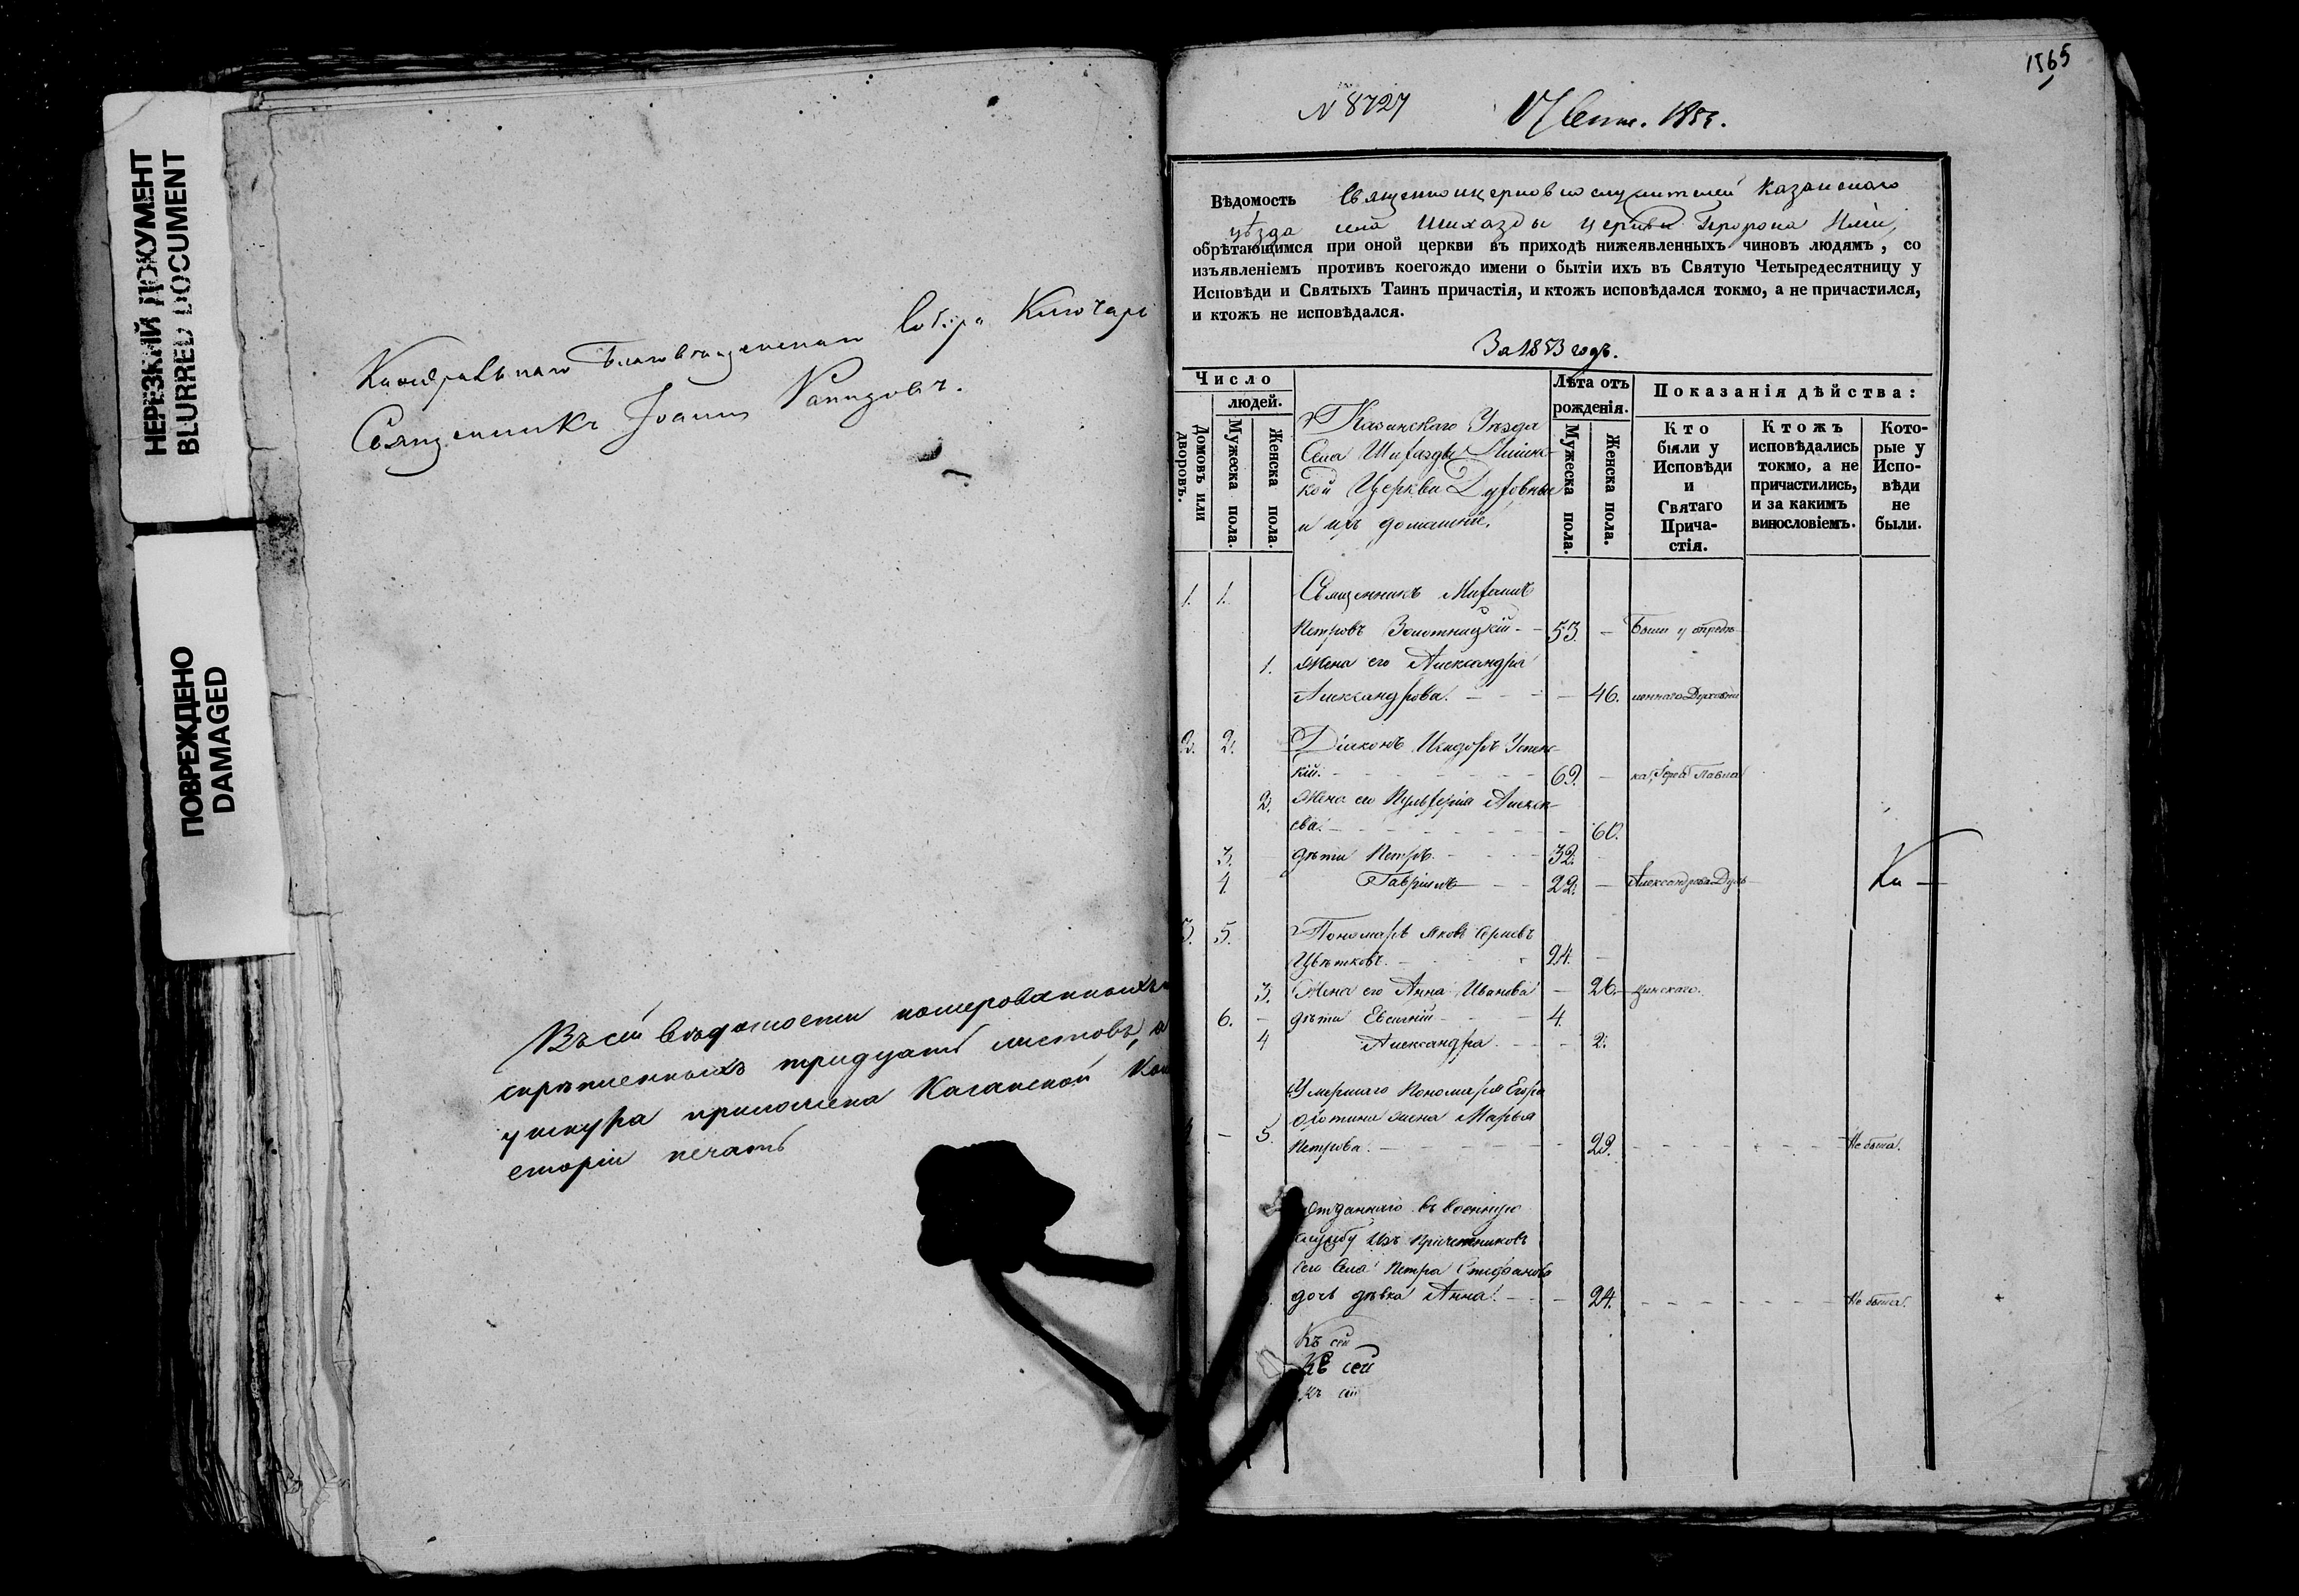 НЕРЕЗКИЙ ДОКУМЕНТ
BLURRED DOCUMENT
ПОВРЕЖДЕНО
DAMAGED
Каѳедральнаго Благовѣщенскаго Собора Ключарь
Священникъ Іоаннъ
Въ сей вѣдомости нумерованныхъ
скрѣпленныхъ тридцать листовъ, а
у шнура приложена Казанской Кон
систоріи печать
1565
N 8727 17 Сент. 1853.
Вѣдомость Священноицерковнослужителей Казанскаго
уѣзда села Шихазды церкви Пророка Иліи,
обрѣтающимся при оной церкви въ приходѣ нижеявленныхъ чиновъ людямъ, со
изъявленіемъ противъ коегождо имени о бытіи ихъ въ Святую Четыредесятницу у
Исповѣди и Святыхъ Таинъ причастія, и ктожъ исповѣдался токмо, а не причастился,
и ктожъ не исповѣдался.
За 1853 годъ.
Число
людей.
Домовъ или дворовъ.
Мужеска пола.
Женска пола.
Казанскаго Уѣзда
Села Шихазды Ильинс-
кой Церкви Духовные
и ихъ домашніе.
Лѣта отъ
рожденія.
Мужеска пола.
Женска пола.
Показанія дѣйства:
Кто
были у
Исповѣди
и
Святаго
Прича-
стія.
Ктожъ
исповѣдались
токмо, а не
причастились,
и за какимъ
винословіемъ.
Кото-
рые у
Испо-
вѣди
не
были.
1. 1. Священникъ Михаилъ
Петровъ Золотницкій 53. Были у опредѣ-
1. Жена его Александра
Александрова. 46. леннаго Духовни
2. 2. Діаконъ Исидоръ Успенс-
кій. 69. ка, Іерея Павла
2. Жена его Пульхерія Алексѣ-
ева. 60.
3. дѣти Петръ. 32.
4. Гавріилъ 22. Ка
3. 5. Пономарь Яковъ
Цвѣтковъ. 24.
3. Жена его Анна Иванова 26. зинскаго.
6. дѣти Евгеній 4.
4 Александра. 2.
Умершаго Пономаря Егора
5. жена Марья
Петрова. 29. Не была.
Отданнаго въ военную
службу изъ причетниковъ
сего Села Петра Стефанова
дочь дѣвка Анна. 24. Не была.
Къ сей
Къ сей
Къ сей